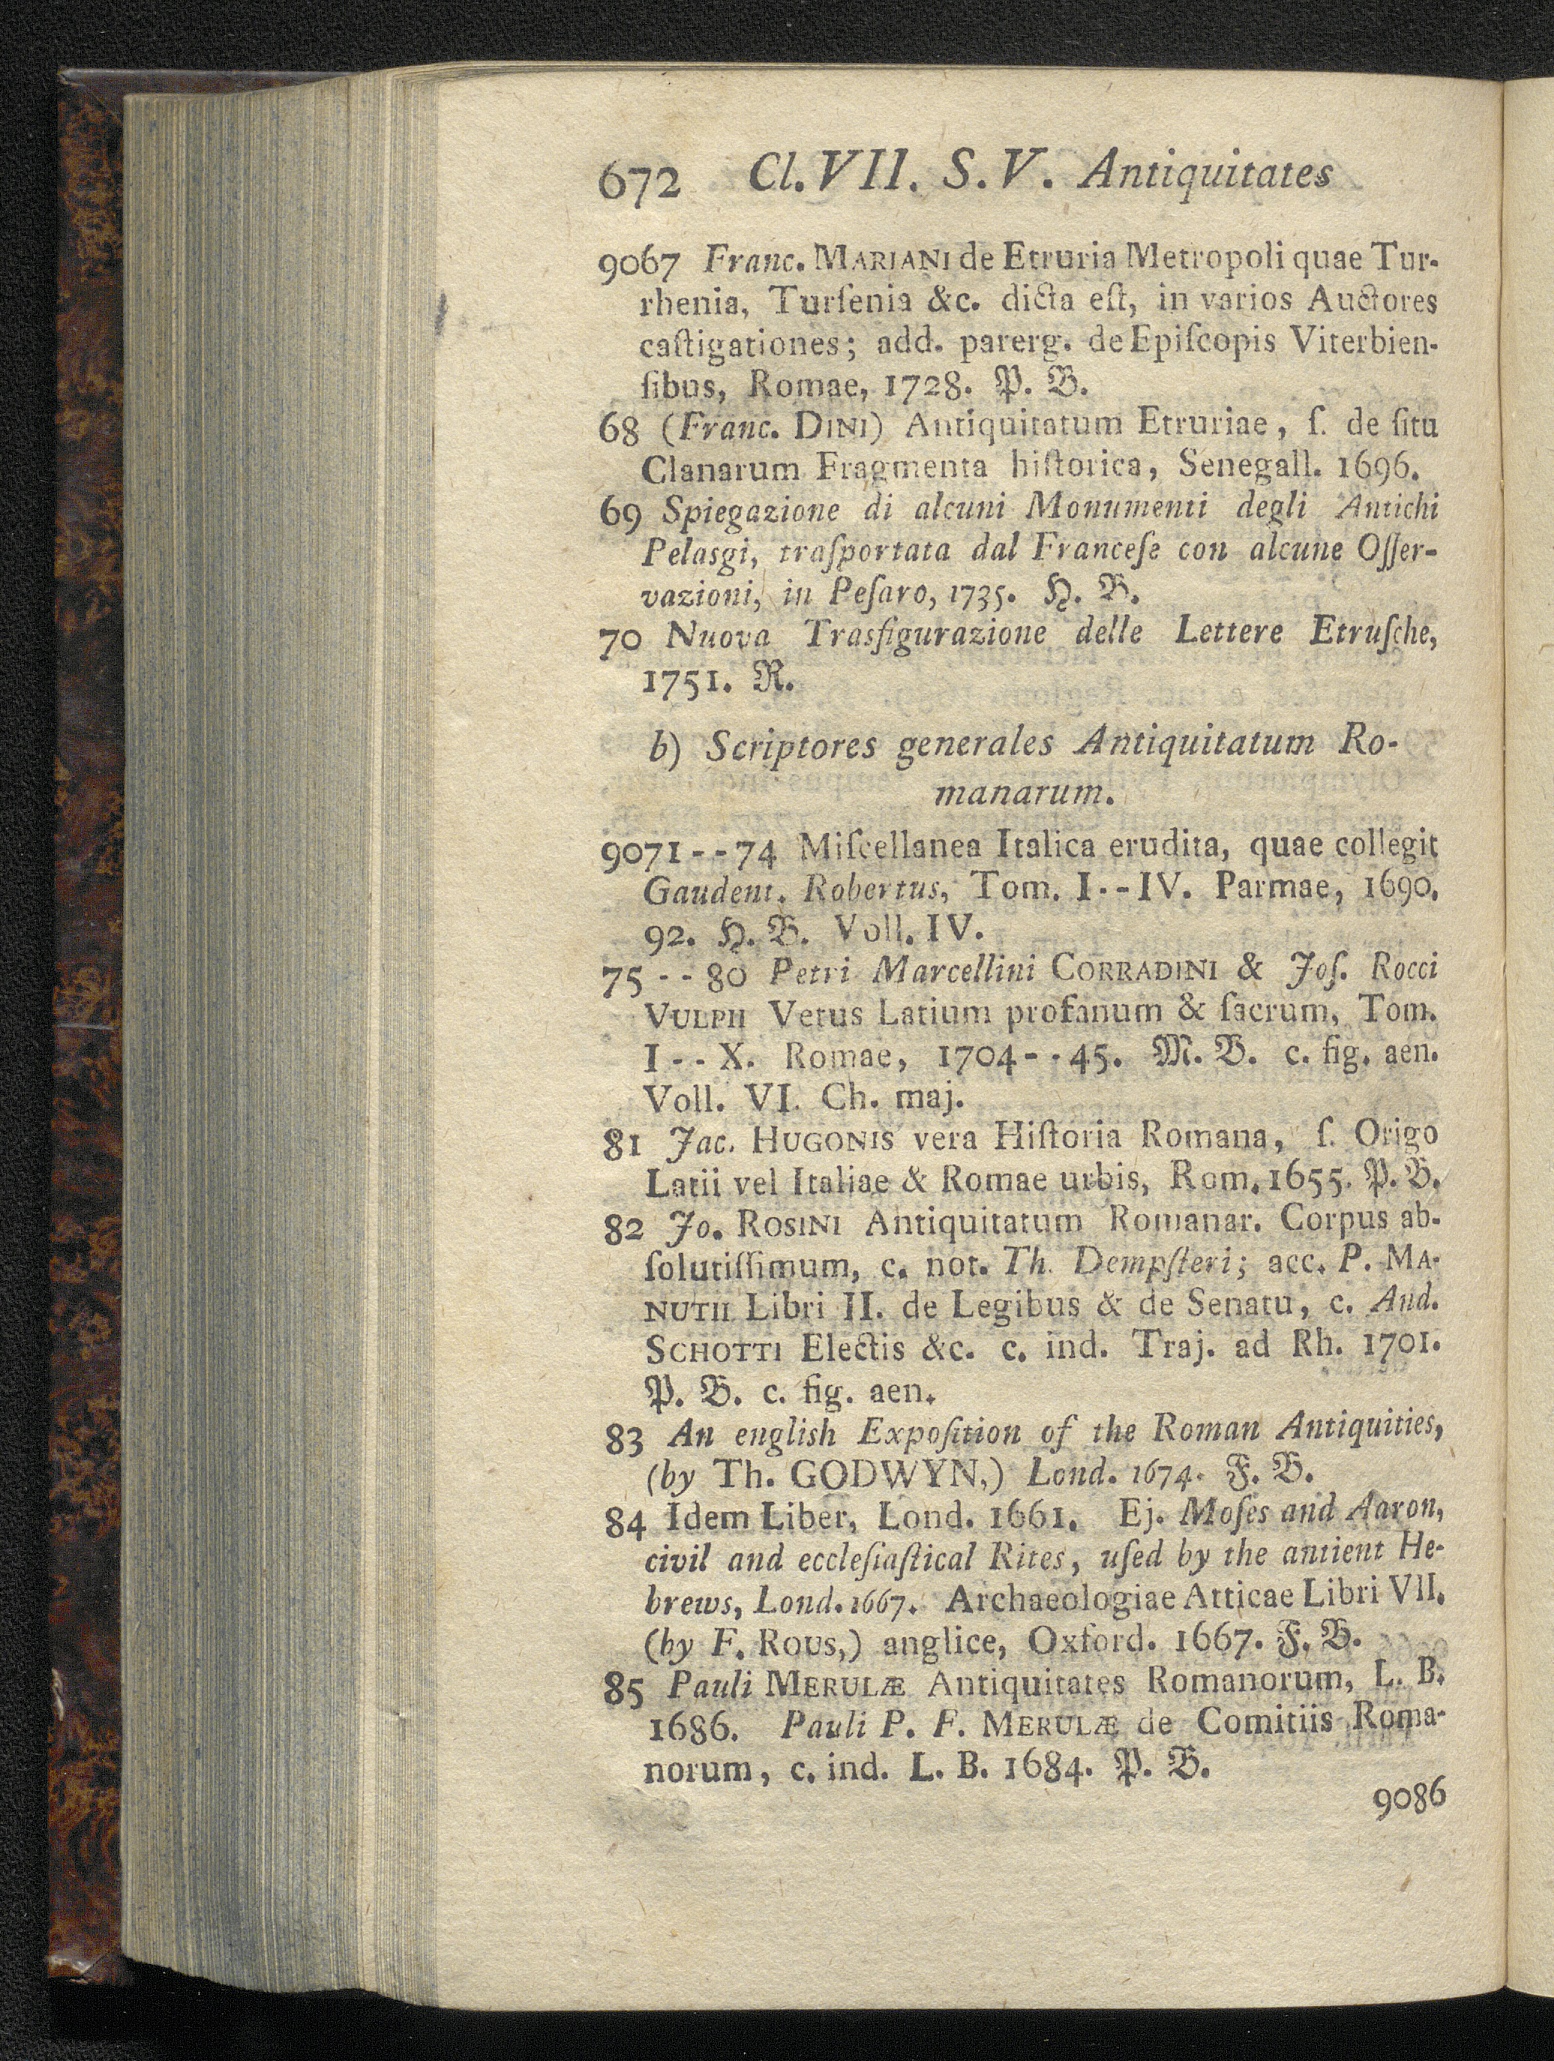 672 Cl. VII. S. V. Antiquitates
9067 Franc. MARIANI de Etruria Metropoli quae Tur-
rhenia, Turſenia &c. dicta eſt, in varios Auctores
caſtigationes; add. parerg. de Epiſcopis Viterbien-
ſibus, Romae, 1728. P. B.
68 (Franc. DINI) Antiquitatum Etruriae, ſ. de ſitu
Clanarum Fragmenta hiſtorica, Senegall. 1696.
69 Spiegazione di alcuni Monumenti degli Antichi
Pelasgi, traſportata dal Franceſe con alcune Oſſer-
vazioni, in Peſaro, 1735. H. B.
70 Nuova Trasfigurazione delle Lettere Etruſche,
1751. R.
b) Scriptores generales Antiquitatum Ro-
manarum.
9071--74 Miſcellanea Italica erudita, quae collegit
Gaudent. Robertus, Tom. I--IV. Parmae, 1690.
92. H. B. Voll. IV.
75--80 Petri Marcellini CORRADINI & Joſ. Rocci
VULPII Vetus Latium profanum & ſacrum, Tom.
I--X. Romae, 1704--45. M. B. c. fig. aen.
Voll. VI. Ch. maj.
81 Jac. HUGONIS vera Hiſtoria Romana, ſ. Origo
Latii vel Italiae & Romae urbis, Rom. 1655. P. B.
82 Jo. ROSINI Antiquitatum Romanar. Corpus ab-
ſolutiſſimum, c. not. Th. Dempſteri; acc. P. MA-
NUTII Libri II. de Legibus & de Senatu, c. And.
SCHOTTI Electis &c. c. ind. Traj. ad Rh. 1701.
P. B. c. fig. aen.
83 An english Expoſition of the Roman Antiquities,
(by Th. GODWYN,) Lond. 1674. F. B.
84 Idem Liber, Lond. 1661. Ej. Moſes and Aaron,
civil and eccleſiaſtical Rites, uſed by the antient He-
brews, Lond. 1667. Archaeologiae Atticae Libri VII.
(by F. ROUS,) anglice, Oxford. 1667. F. B.
85 Pauli MERULÆ Antiquitates Romanorum, L. B.
1686. Pauli P. F. MERULÆ de Comitiis Roma-
norum, c. ind. L. B. 1684. P. B.
9086